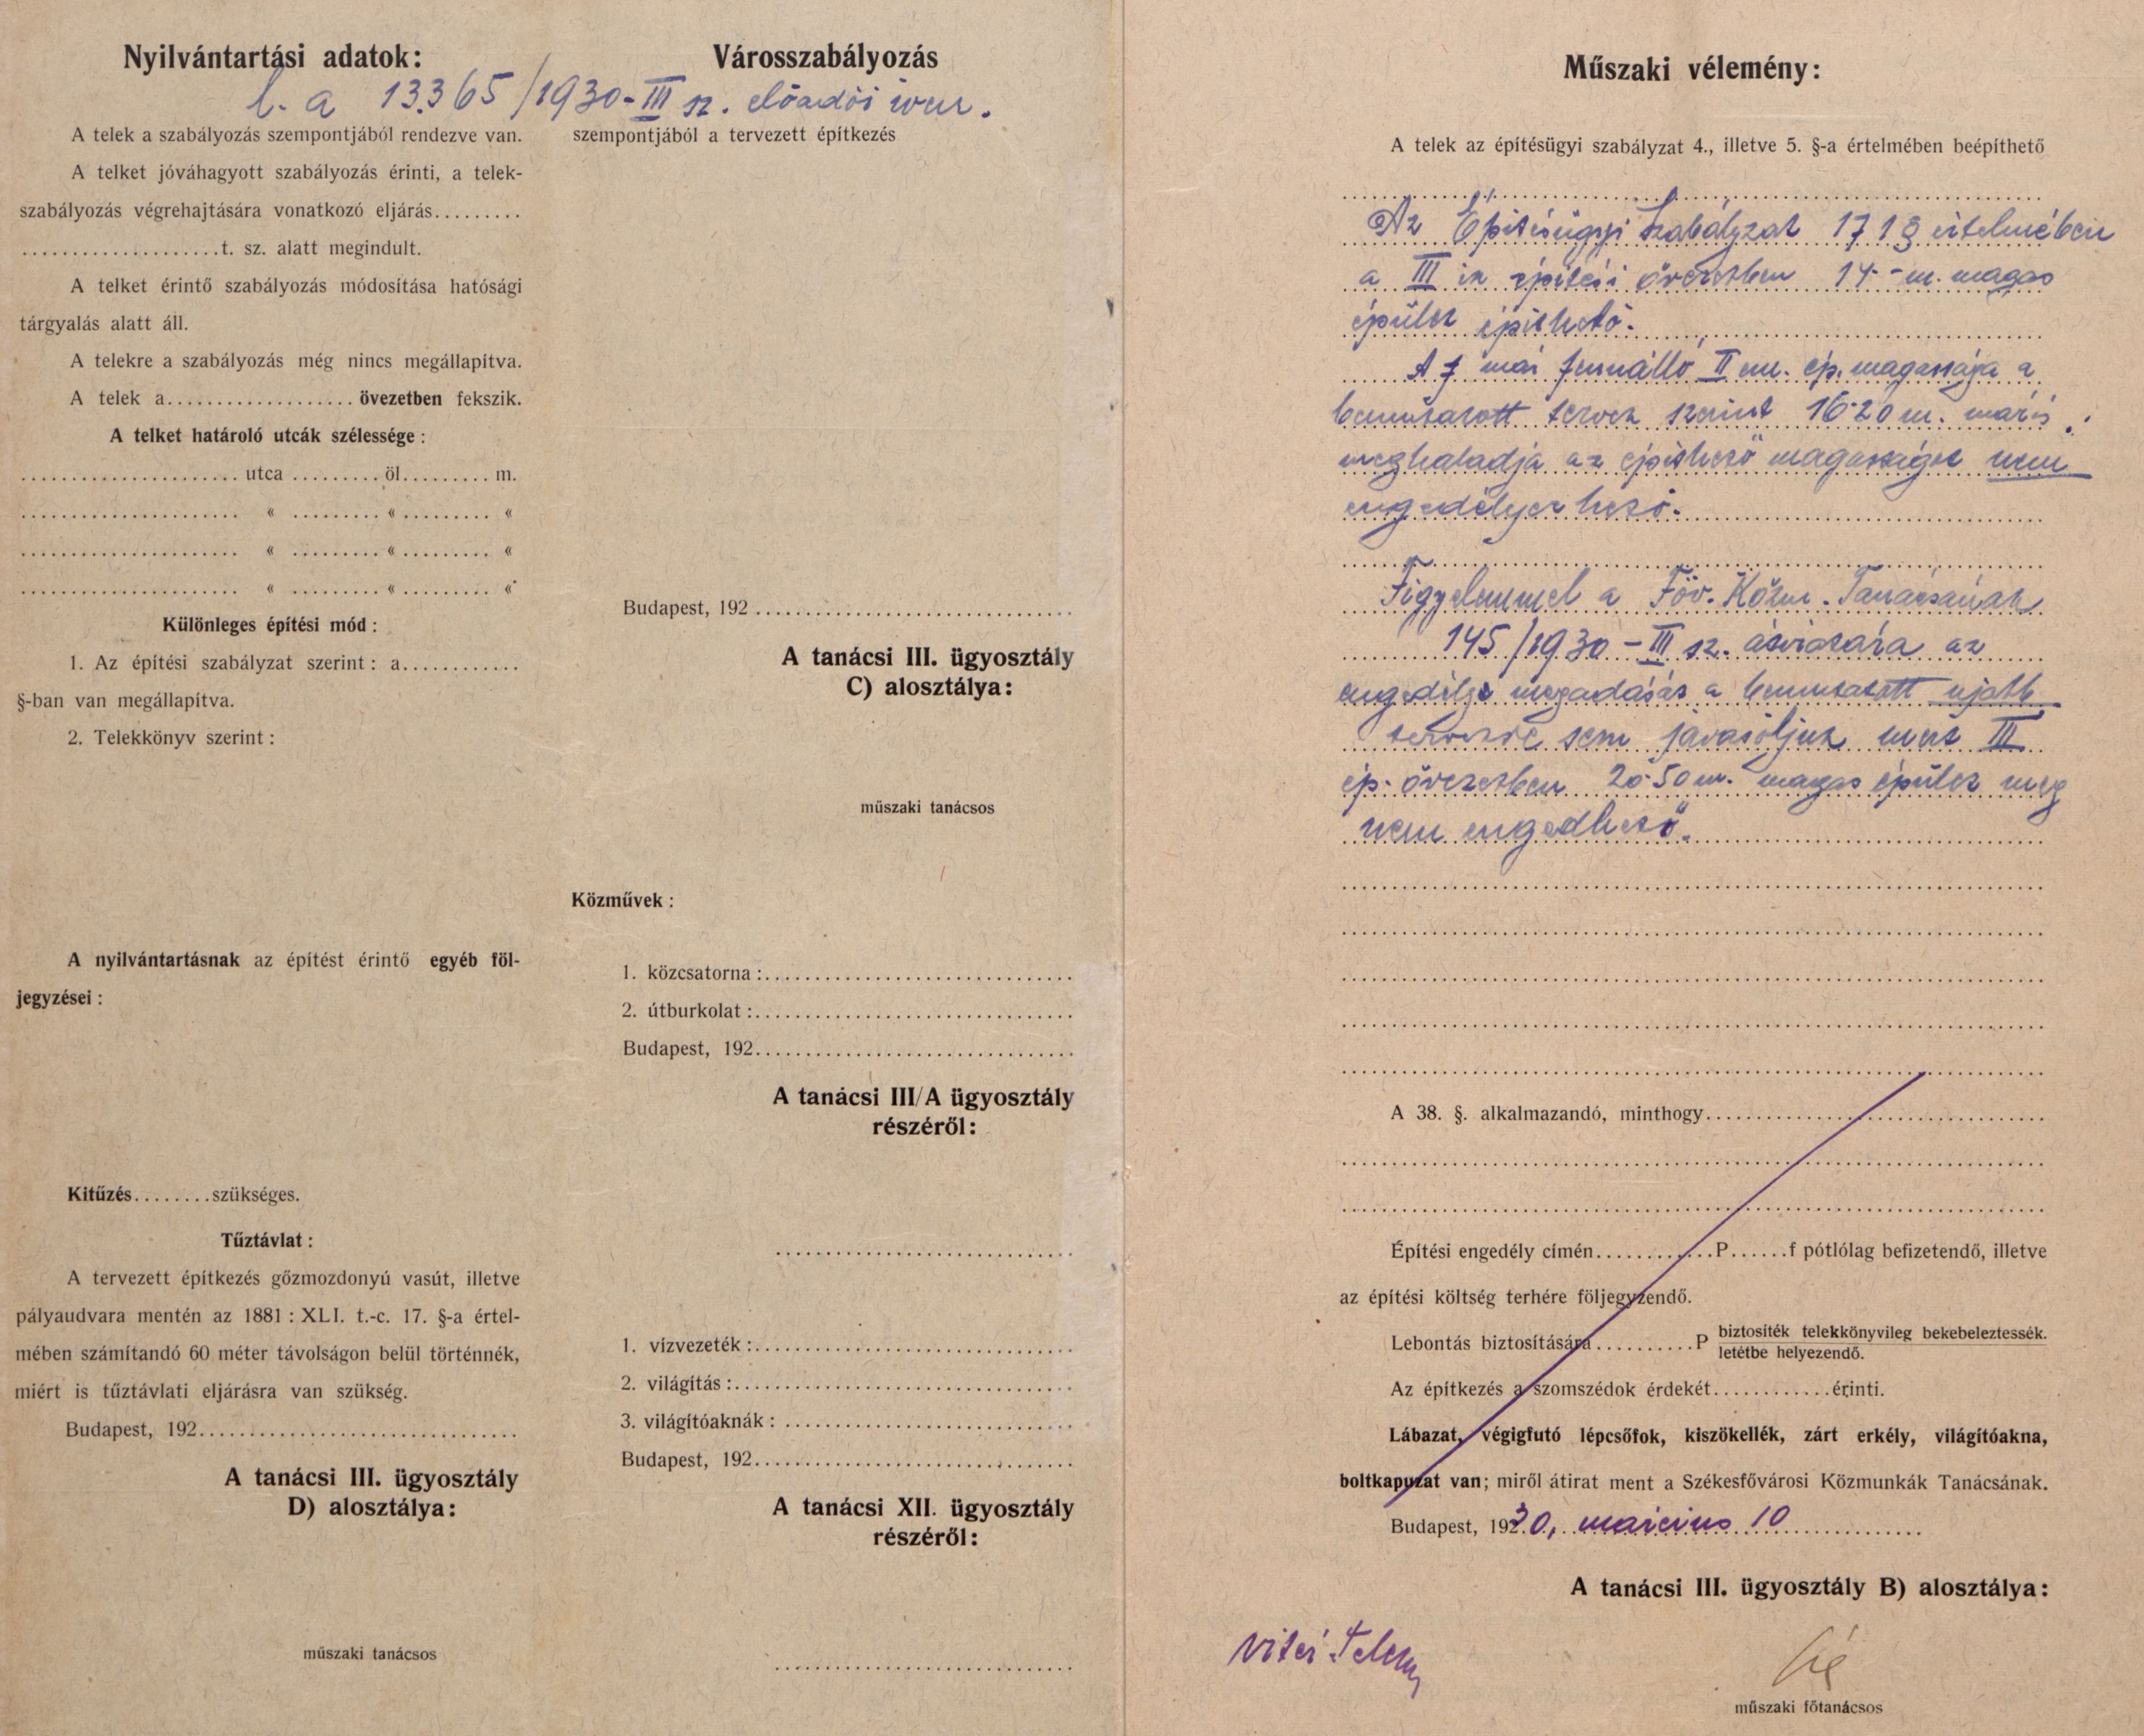 Nyilvántartási adatok:
l. a 13.365/1930-III sz. előadói iven.
A telek a szabályozás szempontjából rendezve van.
A telket jóváhagyott szabályozás érinti, a telek-
szabályozás végrehajtására vonatkozó eljárás.........
....................t. sz. alatt megindult.
A telket érintő szabályozás módosítása hatósági
tárgyalás alatt áll.
A telekre a szabályozás még nincs megállapítva.
A telek a................... övezetben fekszik.
A telket határoló utcák szélessége :
...................... utca ......... öl......... m.
...................... « ......... « ......... «
...................... « ......... « ......... «
...................... « ......... « ......... «
Különleges építési mód :
1. Az építési szabályzat szerint : a............
§-ban van megállapítva.
2. Telekkönyv szerint :
A nyilvántartásnak az építést érintő egyéb föl-
jegyzései :
Kitűzés........szükséges.
Tűztávlat :
A tervezett építkezés gőzmozdonyú vasút, illetve
pályaudvara mentén az 1881 : XLI. t.-c. 17. §-a értel-
mében számítandó 60 méter távolságon belül történnék,
miért is tűztávlati eljárásra van szükség.
Budapest, 192................................
A tanácsi III. ügyosztály
D) alosztálya:
műszaki tanácsos
Városszabályozás
szempontjából a tervezett építkezés
Budapest, 192................................
A tanácsi III. ügyosztály
C) alosztálya:
műszaki tanácsos
Közművek :
1. közcsatorna :..............................
2. útburkolat :................................
Budapest, 192................................
A tanácsi III/A ügyosztály
részéről:
1. vízvezeték :................................
2. világítás :..................................
3. világítóaknák : .............................
Budapest, 192................................
A tanácsi XII. ügyosztály
részéről:
Műszaki vélemény:
A telek az építésügyi szabályzat 4., illetve 5. §-a értelmében beépíthető
Az Építésügyi Szabályzat 171 § értelmében
a III ik építési övezetben 14- m. magas
épület építhető.
A már fennálló II em. ép. magassága a
bemutatott tervek szerint 16·20 m. máris
meghaladja az építhető magasságot nem
engedélyezhető.
Figyelemmel a Föv. Közm. Tanácsának
145/1930-III sz. átiratára az
engedély megadását a bemutatott ujabb
tervekre sem javasoljuk mert III
ép. övezetben 20·50 m. magas épület meg
nem engedhető.
A 38. §. alkalmazandó, minthogy..............................
Építési engedély címén............P......f pótlólag befizetendő, illetve
az építési költség terhére följegyzendő.
Lebontás biztosítására..........P biztosíték telekkönyvileg bekebeleztessék.
letétbe helyezendő.
Az építkezés a szomszédok érdekét............érinti.
Lábazat, végigfutó lépcsőfok, kiszökellék, zárt erkély, világítóakna,
boltkapuzat van; miről átirat ment a Székesfővárosi Közmunkák Tanácsának.
Budapest, 1930, március 10
A tanácsi III. ügyosztály B) alosztálya:
műszaki főtanácsos